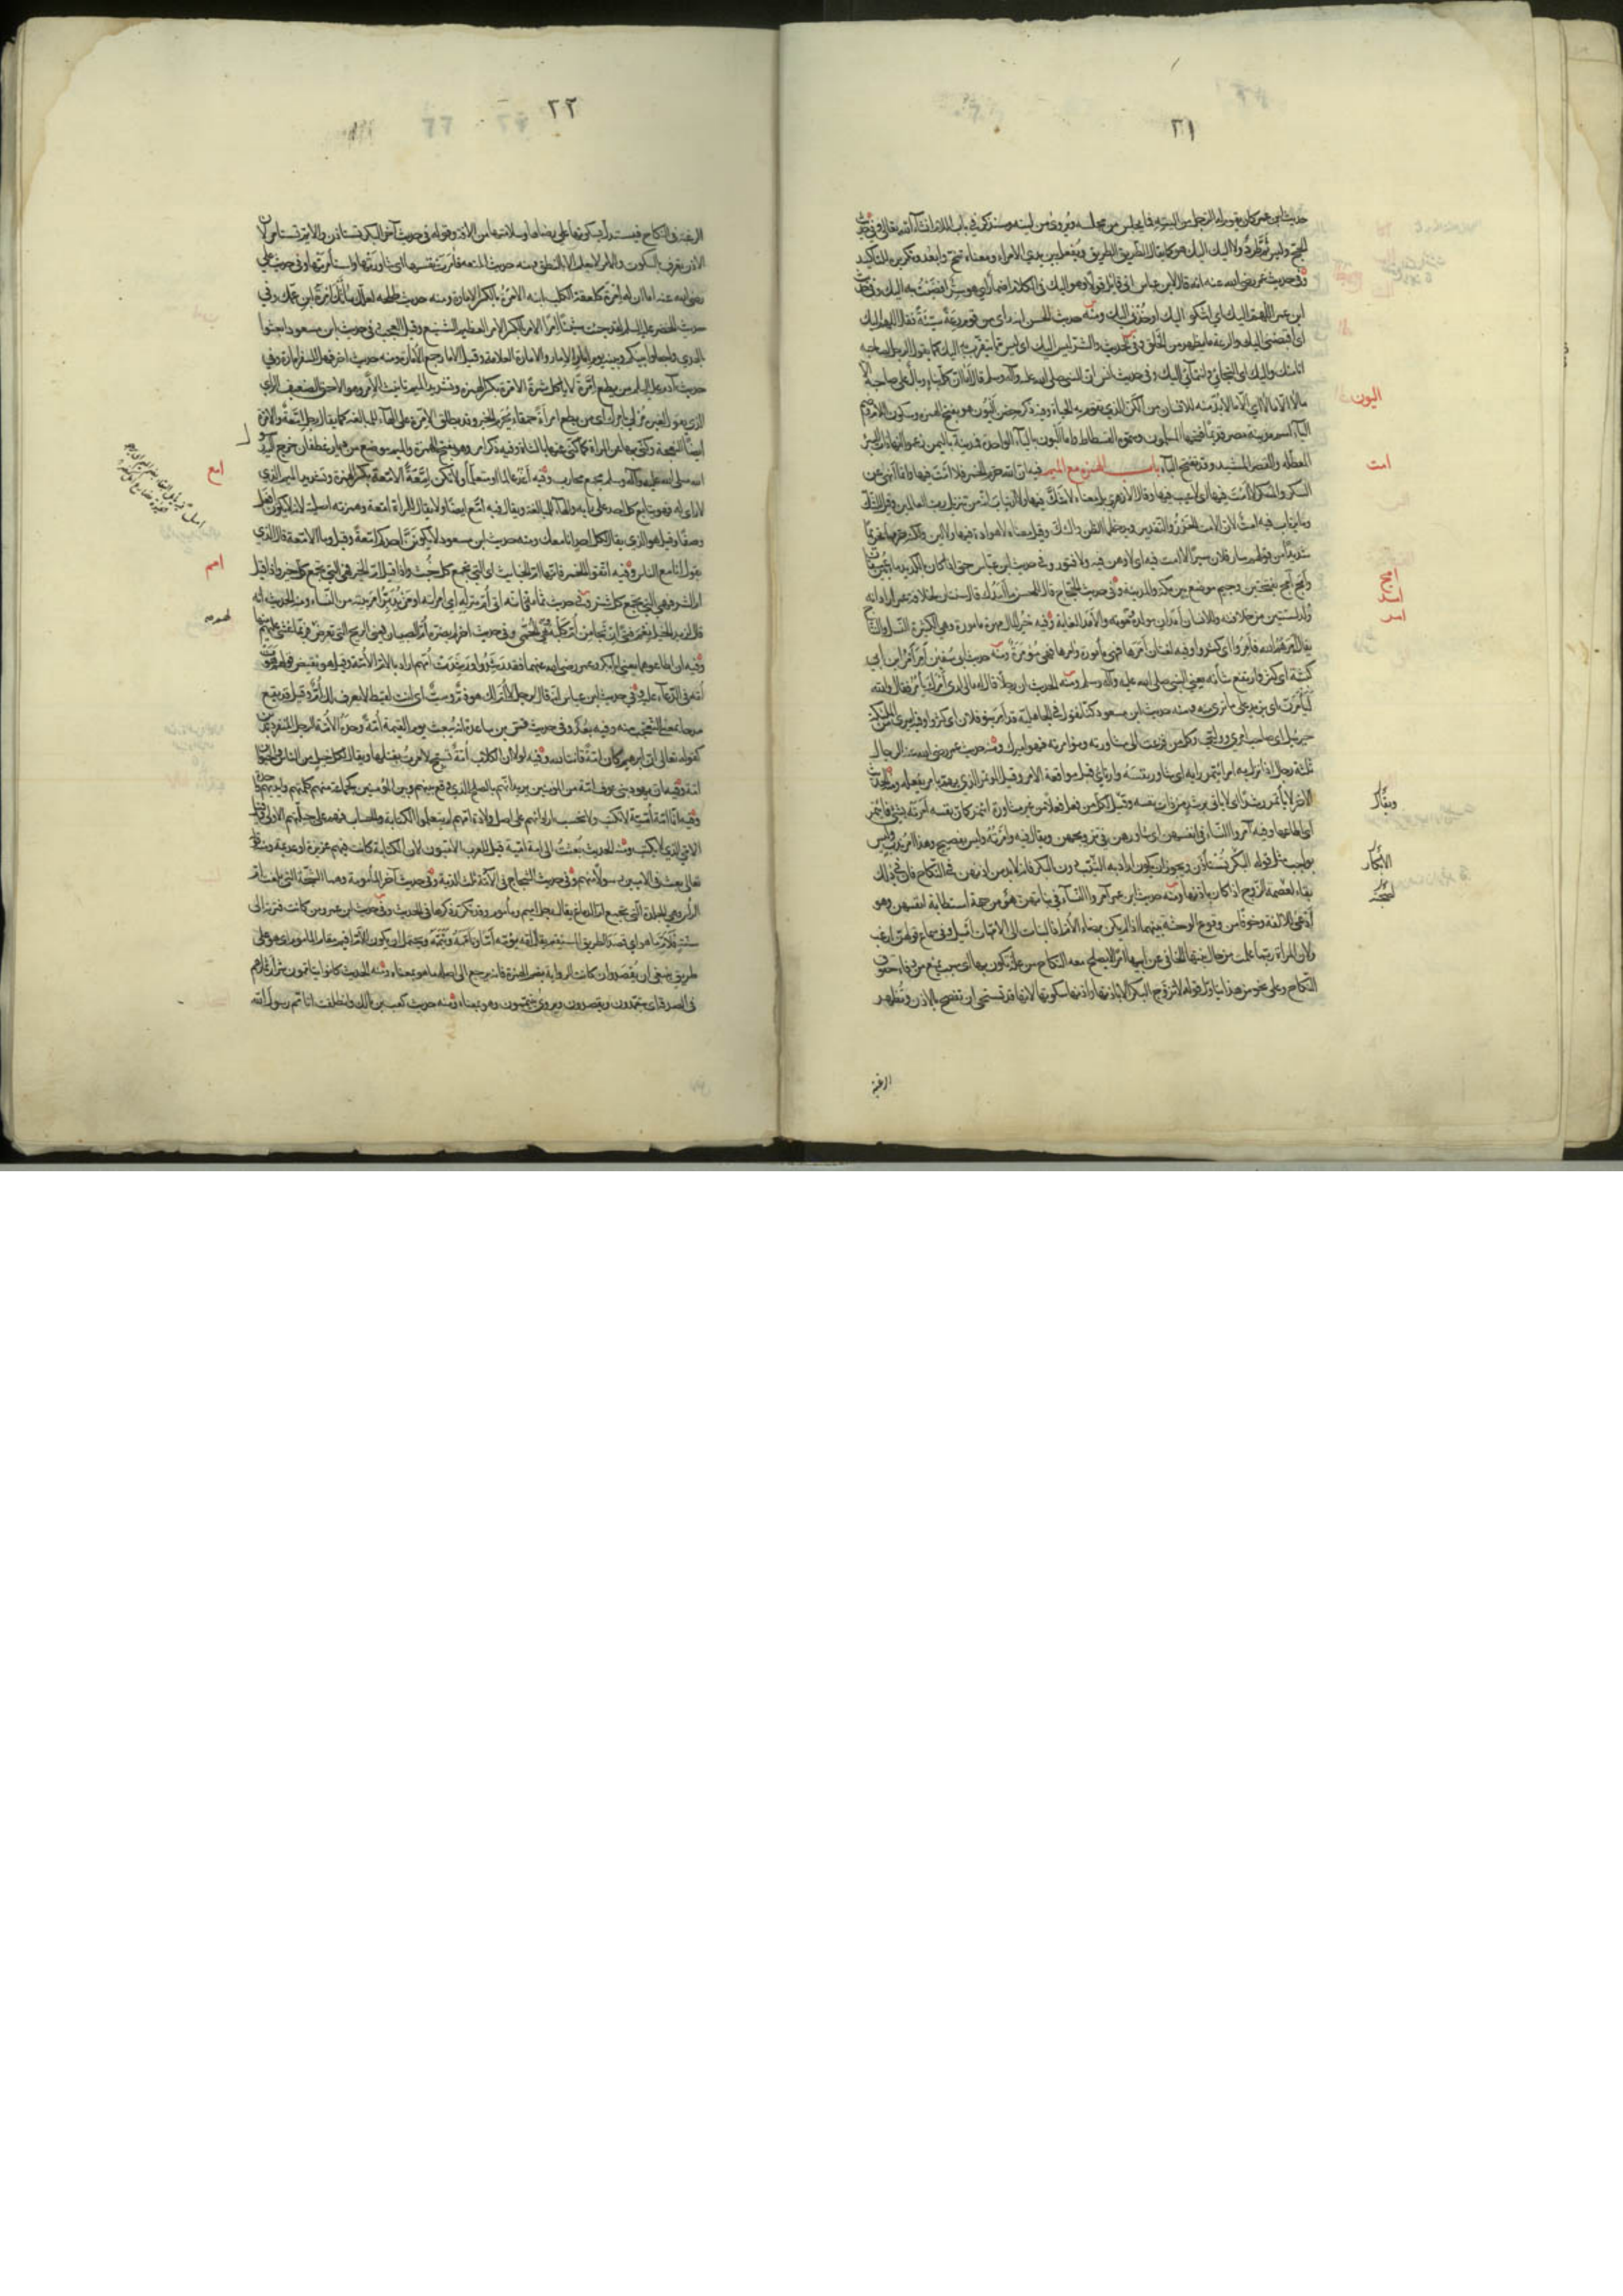 ٢١
حديث ابن عمر كان يقوم له الرجل من اليته فما يجلس من مجلسه ويروى من لينه وسنذكر في باب اللام ان شاء الله تعالى وفي حديث
الحج وليس ثم طرد ولا اليك اليك هو كما يقال الطريق الطريق ويفعل بين يدي الامراء ومعناه تنح وابعد وتكريره للتاكيد
وفي حديث عمر رضي الله عنه انه قال لابن عباس اني قائل قولا وهو اليك في الكلام اضمار أي هو سر افضيت به اليك وفي حديث
ابن عمر اللهم اليك اي اشكو اليك او خذني اليك ومنه حديث الحسن انه رأى من قوم رعة سيئة فقال اللهم اليك
اي اقبضني اليك والرعة ما يظهر من الخلق وفي الحديث والشر ليس اليك اي ليس مما يتقرب به اليك كما يقول الرجل لصاحبه
انا منك واليك اي التجائي وانتمائي اليك وفي حديث انس ان النبي صلى الله عليه وآله وسلم قال اما ان كل بناء وبال على صاحبه الا
ما لا الا ما لا اي الا ما لا بد منه للانسان من الكن الذي تقوم به الحياة وفيه ذكر حصن اليون هو بفتح الهمزة وسكون اللام وضم
الياء اسم مدينة مصر قديما فتحها المسلمون وسموها الفسطاط فاما البون بالباء الواحدة فمدينة باليمن زعموا انها ذات البئر
المعطلة والقصر المشيد وقد تفتح الباء باب الهمزة مع الميم فيه ان الله حرم الخمر فلا امت فيها وانما انهى عن
السكر والمسكر لا امت فيها اي لا عيب فيها وقال الازهري بل معناه لا شك فيها ولا ارتياب انه من تنزيل رب العالمين وقيل للشك
وما يرتاب فيه امت لان الامت الحزر والتقدير ويدخلهما الظن والشك وقيل معناه لا هوادة فيها ولا لين ولكنه حرمها تحريما
شديدا من قولهم سار فلان سيرا لا امت فيه اي لا وهن فيه ولا فتور وفي حديث ابن عباس حتى اذا كان بالكديد ماء بين عسفان
وامج امج بفتحتين وجيم موضع بين مكة والمدينة وفي حديث الحجاج قال للحسن ما امدك قال سنتان لخلافة عمر اراد انه
ولد لسنتين من خلافته وللانسان امدان مولده وموته والامد الغاية وفيه خير المال مهرة مأمورة وهي الكثيرة النسل والنتاج
يقال امرهم الله فامروا اي كثروا وفيه لغتان امرها فهي مأمورة وآمرها فهي مؤمرة ومنه حديث ابي سفين لقد امر امر ابن ابي
كبشة اي كثر وارتفع شأنه يعني النبي صلى الله عليه وآله وسلم ومنه الحديث ان رجلا قال له مالي ارى امرك يأمر فقال والله
ليأمرن اي يزيد على ما ترى ومنه حديث ابن مسعود كنا نقول في الجاهلية قد امر بنو فلان اي كثروا وفيه اميري من الملائكة
جبريل اي صاحب امري ووليي وكل من فزعت الى مشاورته ومؤامرته فهو اميرك ومنه حديث عمر رضي الله عنه الرجال
ثلثة رجل اذا نزل به امر ائتمر رأيه اي شاور نفسه وارتأى قبل مواقعة الامر وقيل المؤتمر الذي يهم بامر يفعله ومنه الحديث
الآخر لا يأتمر رشدا اي لا يأتي برشد من ذات نفسه وقيل لكل من فعل فعلا من غير مشاورة ائتمر كأن نفسه امرته بشيء فائتمر
اي اطاعها وفيه آمروا النساء في انفسهن اي شاوروهن في تزويجهن ويقال فيه وامرته وليس بفصيح وهذا امر ندب وليس
بواجب مثل قوله البكر تستأذن ويجوز ان يكون اراد به الثيب دون البكر فانه لا بد من اذنهن في النكاح فان في ذلك
بقاء لصحبة الزوج اذا كان باذنها ومنه حديث ابن عمر آمروا النساء في بناتهن هو من جهة استطابة انفسهن وهو
ادعى للالفة وخوفا من وقوع الوحشة بينهما اذا لم يكن برضاء الام اذ البنات الى الامهات اميل وفي سماع قولهن ارغب
ولان المرأة ربما علمت من حال بنتها الخافي عن ابيها امرا لا يصلح معه النكاح من علة تكون بها او سبب يمنع من وفاء حقوق
النكاح وعلى نحو من هذا يتأول قوله لا تزوج البكر الا باذنها واذنها سكوتها لانها قد تستحي ان تفصح بالاذن وتظهر
الرغبة
اليون
امت
امج
امد
امر
٢٢
الرغبة في النكاح فيستدل بسكوتها على رضاها وسلامتها من الآفة وقوله في حديث آخر البكر تستاذن والايم تستامر لان
الاذن يعرف بالسكوت والامر لا يعلم الا بالنطق ومنه حديث المتعة فآمرت نفسها اي شاورتها واستأمرتها وفي حديث علي
رضي الله عنه اما ان له امرة كلعقة الكلب ابنه الامرة بالكسر الامارة ومنه حديث طلحة لعلك ساءتك امرة ابن عمك وفي
حديث الخضر عليه السلم لقد جئت شيئا امرا الامر بالكسر الامر العظيم الشنيع وقيل العجب وفي حديث ابن مسعود ابعثوا
بالهدي واجعلوا بينكم وبينه يوم امار الامار والامارة العلامة وقيل الامار جمع الامارة ومنه حديث آخر فهل للسفر امارة وفي
حديث آدم عليه السلم من يطع امرة لا ياكل ثمرة الامرة بكسر الهمزة وتشديد الميم تانيث الامر وهو الاحمق الضعيف الرأي
الذي يقول لغيره مرني بامرك اي من يطع امرأة حمقاء يحرم الخير وقد يطلق الامرة على الرجل والهاء للمبالغة كما يقال رجل امعة والامرة
ايضا النعجة وكني بها عن المراة كما كني عنها بالشاة وفيه ذكر امر وهو بفتح الهمزة والميم موضع من ديار غطفان خرج اليه
رسول الله صلى الله عليه وآله وسلم لجمع محارب وفيه اغد عالما او متعلما ولا تكن امعة الامعة بكسر الهمزة وتشديد الميم الذي
لا رأي له فهو يتابع كل احد على رايه والهاء للمبالغة ويقال فيه امع ايضا ولا يقال للمراة امعة وهمزته اصلية لانه لا يكون افعل
وصفا وقيل هو الذي يقول لكل احد انا معك ومنه حديث ابن مسعود لا يكونن احدكم امعة قيل وما الامعة قال الذي
يقول انا مع الناس وفيه اتقوا الخمر فانها ام الخبائث اي التي تجمع كل خبث واذا قيل ام الخير فهي التي تجمع كل خير واذا قيل
ام الشر فهي التي تجمع كل شر وفي حديث ثمامة انه اتى ام منزله اي امراته او من يدبر امر بيته من النساء ومنه الحديث انه
قال لزيد الخيل نعم فتى ان نجا من ام كلبة هي الحمى وفي حديث آخر لم تضره ام الصبيان يعني الريح التي تعرض لهم فربما غشي عليهم منها
وفيه ان اطاعوهما يعني ابا بكر وعمر رضي الله عنهما فقد رشدوا ورشدت امهم اراد بالام الامة وقيل هو نقيض قولهم هوت
امه في الدعاء عليه وفي حديث ابن عباس انه قال لرجل لا ام لك هو ذم وسب اي انت لقيط لا يعرف لك ام وقيل قد يقع
مدحا بمعنى التعجب منه وفيه بعد وفي حديث قس بن ساعدة انه يبعث يوم القيمة امة وحده الامة الرجل المنفرد بدين
كقوله تعالى ان ابرهيم كان امة قانتا لله وفيه لولا ان الكلاب امة تسبح لامرت بقتلها ويقال لكل جيل من الناس والحيوان
امة وفيه ان يهود بني عوف امة من المؤمنين يريد انهم بالصلح الذي وقع بينهم وبين المؤمنين كجماعة منهم كلمتهم وايديهم واحدة
وفيه انا امة امية لا نكتب ولا نحسب اراد انهم على اصل ولادة امهم لم يتعلموا الكتابة والحساب فهم على جبلتهم الاولى وقيل
الامي الذي لا يكتب ومنه الحديث بعثت الى امة امية قيل للعرب الاميون لان الكتابة كانت فيهم عزيزة او عديمة ومنه قوله
تعالى بعث في الاميين رسولا منهم وفي حديث الشجاج في الآمة ثلث الدية وفي حديث آخر المأمومة وهما الشجة التي بلغت ام
الرأس وهي الجلدة التي تجمع الدماغ يقال رجل اميم ومأموم وقد تكرر ذكرها في الحديث وفي حديث ابن عمر من كانت فترته الى
سنة فلأم ما هو اي قصد الطريق المستقيم يقال امه يؤمه اما وتاممه وتيممه ويحتمل ان يكون الام اقيم مقام المأموم اي هو على
طريق ينبغي ان يقصد وان كانت الرواية بضم الهمزة فانه يرجع الى اصله ما هو بمعناه ومنه الحديث كانوا يتاممون شرار ثمارهم
في الصدقة اي يتعمدون ويقصدون ويروى يتيممون وهو بمعناه ومنه حديث كعب بن مالك وانطلقت اتأمم رسول الله
امع
امم